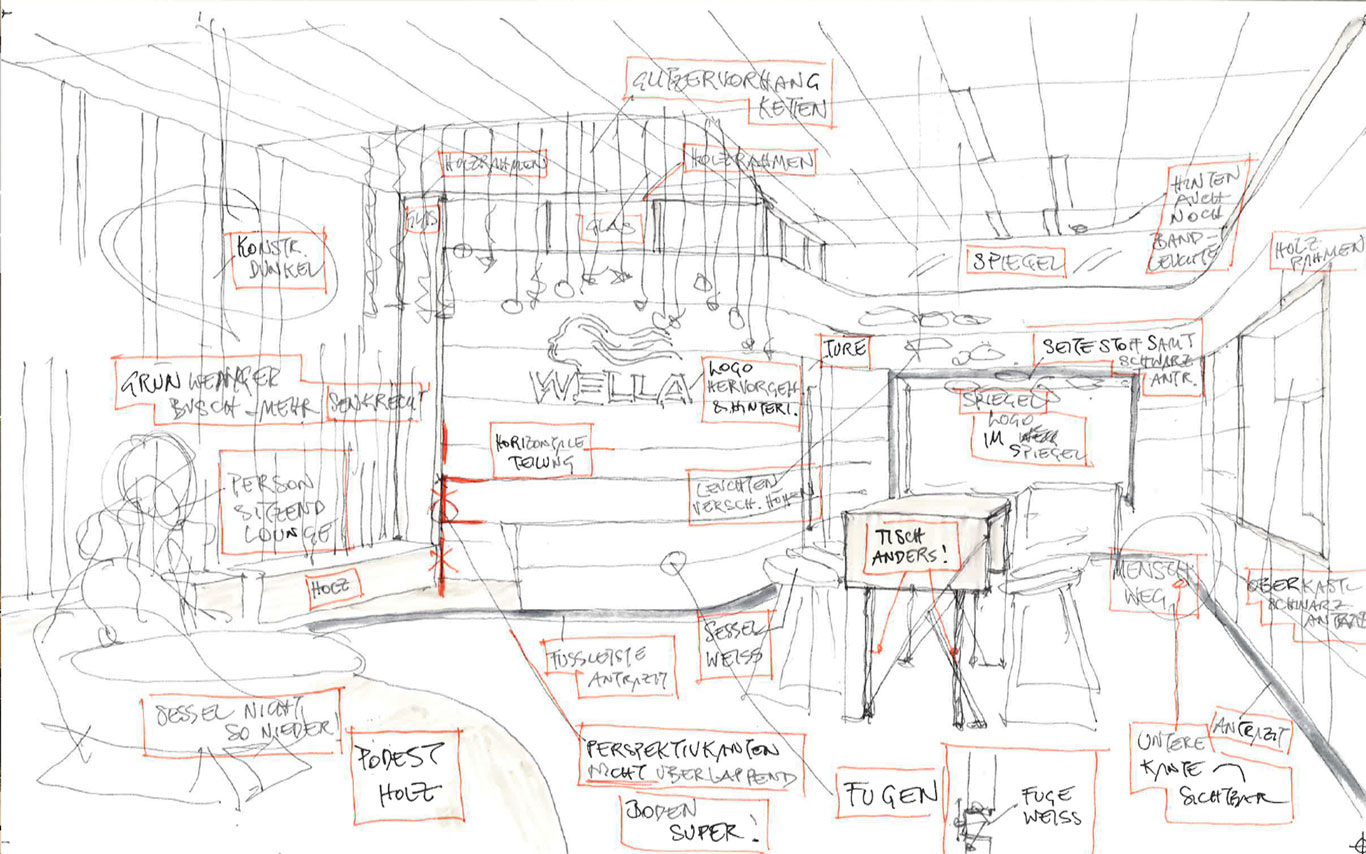 GLITZERVORHANG
KETTEN
HOLZRAHMEN
HOLZRAHMEN
HINTEN
AUCH
NOCH
BAND-
LEUCHTE
GLAS
GLAS
KONSTR.
DUNKEL
SPIEGEL
HOLZ
RAHMEN
WELLA
LOGO
HERVORGEH
& HINTERL.
TÜRE
SEITE STOFF SAMT
SCHWARZ
ANTR.
GRÜN WENIGER
BUSCH - MEHR
SENKRECHT
SPIEGEL
LOGO
IM
SPIEGEL
HORIZONTALE
TEILUNG
PERSON
SITZEND
LOUNGE
LEUCHTEN
VERSCH. HÖHEN
TISCH
ANDERS!
HOLZ
MENSCH
WEG
OBERKASTL
SCHWARZ
ANTRAZIT
SESSEL
WEISS
FUSSLEISTE
ANTRAZIT
SESSEL NICHT
SO NIEDER!
PODEST
HOLZ
PERSPEKTIVKANTEN
NICHT ÜBERLAPPEND
BODEN
SUPER!
FUGEN
FUGE
WEISS
UNTERE
KANTE
SICHTBAR
ANTRAZIT